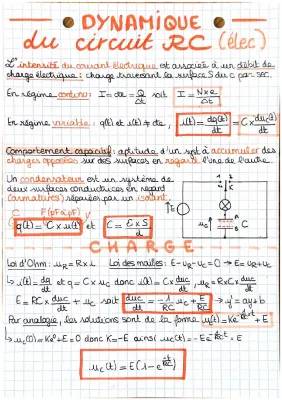 DYNAMIQUE
du circuit RC (élec)
L'intensité du courant électrique est associée à un débit de
charge électrique : charge traversant la surface S du c par sec.
En régime continu : I = dq = Q/Δt soit I = N×e/Δt
En régime variable : q(t) et i(t) ≠ cte, i(t) = dq(t)/dt = C× duc(t)/dt
Comportement capacitif : aptitude d'un syst à accumuler des
charges opposées sur des surfaces en regard l'une de l'autre.
Un condensateur est un système de
deux surfaces conductrices en regard
(armatures) séparées par un isolant.
C F(pF à µF) V
q(t) = C × u(t) et C = E × S/d
E uc C
CHARGE
Loi d'Ohm : uR = R×i Loi des mailles : E-uR-uC = 0 → E = uR+uc
↳ i(t) = dq/dt et q = C×uc donc i(t) = C× duc/dt, uR = R×C× duc/dt
E = RC× duc/dt + uc soit duc/dt = -1/RC uc + E/RC → y' = ay+b
Par analogie, les solutions sont de la forme uc(t) = Ke^-t/RC + E
↳ uc(0) = Ke⁰+E = 0 donc K = -E ainsi uc(t) = -Ee^-t/RC + E
uc(t) = E(1-e^-t/RC)